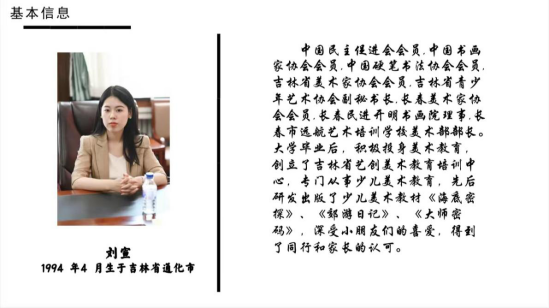 基本信息
中国民主促进会会员,中国书画
家协会会员,中国硬笔书法协会会员,
吉林省美术家协会会员,吉林省青少
年艺术协会副秘书长,长春美术家协
会会员,长春民进开明书画院理事,长
春市远航艺术培训学校美术部部长。
大学毕业后，积极投身美术教育，
创立了吉林省艺创美术教育培训中
心，专门从事少儿美术教育，先后
研发出版了少儿美术教材《海底密
探》、《郊游日记》、《大师密
码》，深受小朋友们的喜爱，得到
了同行和家长的认可。
刘宣
1994 年4 月生于吉林省通化市